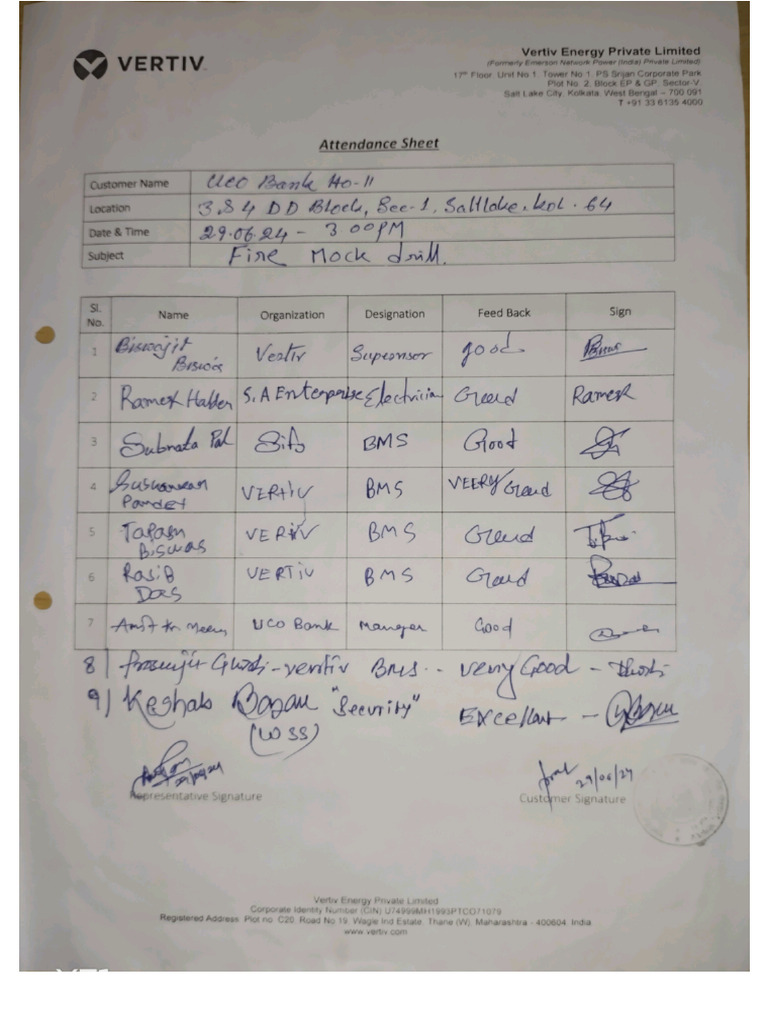 VERTIV
Vertiv Energy Private Limited
(Formerly Emerson Network Power (India) Private Limited)
17th Floor, Unit No 1, Tower No 1, PS Srijan Corporate Park
Plot No. 2, Block EP & GP, Sector-V,
Salt Lake City, Kolkata, West Bengal – 700 091
T +91 33 6135 4000
Attendance Sheet
Customer Name UCO Bank HO-II
Location 3 & 4 DD Block, Sec-1, Saltlake, Kol. 64
Date & Time 29.06.24 – 3 00PM
Subject Fire Mock drill.
Sl. No. Name Organization Designation Feed Back Sign
1 Biswajit Biswas Vertiv Supervisor good
2 Ramesh Halder S.A Enterprise Electrician Good Ramesh
3 Subrata Pal BMS Good
4 VERTIV BMS VEERY Good
5 Tapash Biswas VERTIV BMS Good
6 Rasib Das VERTIV BMS Good
7 UCO Bank Manager Good
8) Prosenjit Ghosh - vertiv BMS - very Good -
9) Keshab "Security" Excellent -
(WSS)
29/06/24
Representative Signature Customer Signature
Vertiv Energy Private Limited
Corporate Identity Number (CIN) U74999MH1993PTC071079
Registered Address Plot no C20, Road No 19, Wagle Ind Estate, Thane (W), Maharashtra - 400604, India
www.vertiv.com